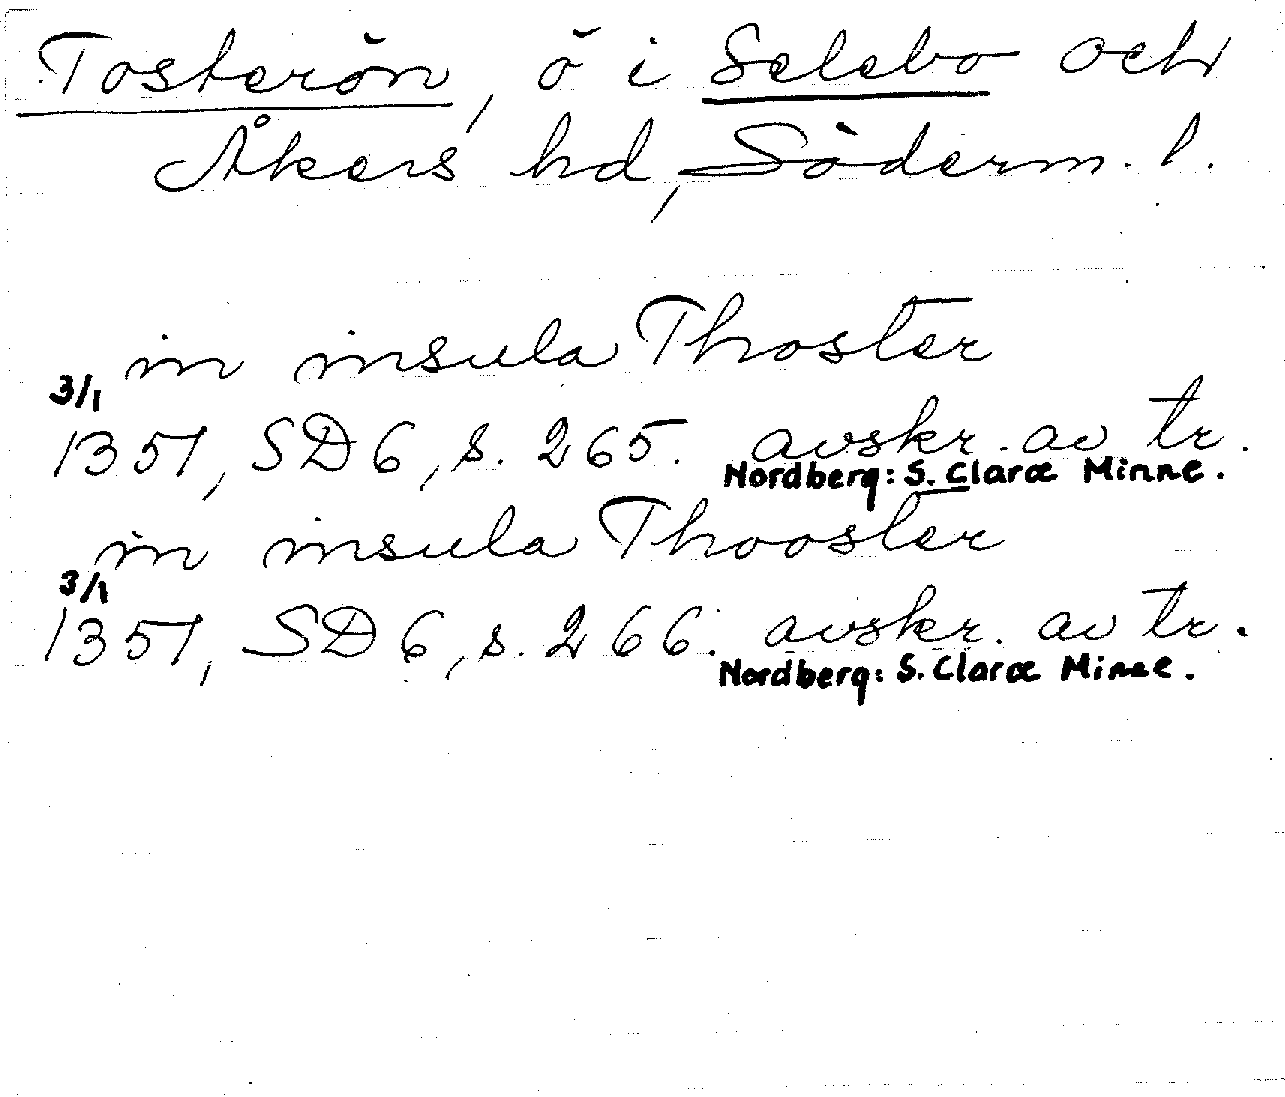 Tosterön, ö i Selebo och
Åkers hd, Söderm. l.
in insula Thoster
3/1
1351, SD 6, s. 265. avskr. av tr.
Nordberg: S. Claræ Minne.
in insula Thooster
3/1
1351, SD 6, s. 266. avskr. av tr.
Nordberg: S. Claræ Minne.